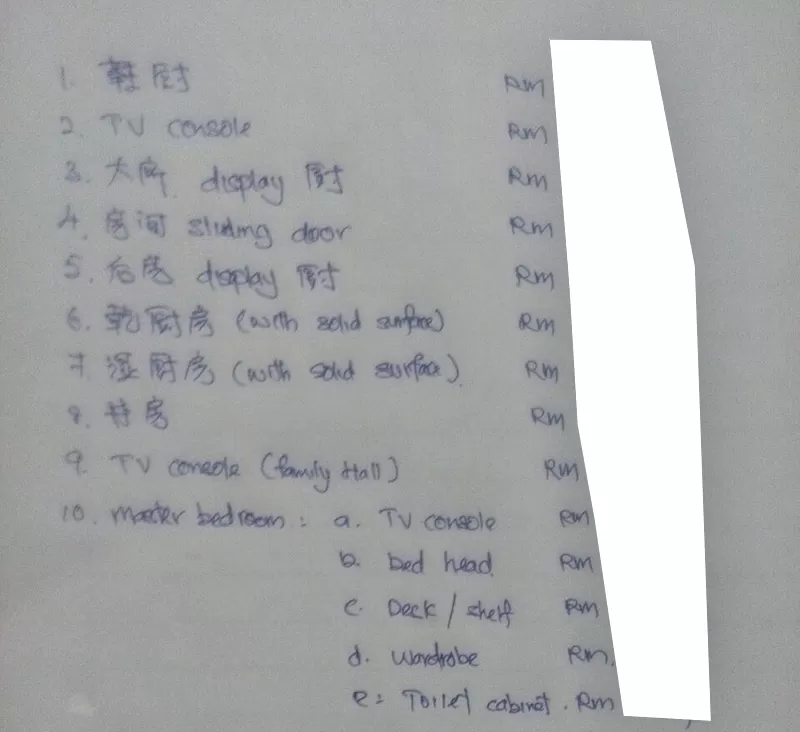 1. 鞋厨 Rm
2. TV console Rm
3. 大厅 display 厨 Rm
4. 房间 sliding door Rm
5. 后房 display 厨 Rm
6. 乾厨房 (with solid surface) Rm
7. 湿厨房 (with solid surface) Rm
8. 房 Rm
9. TV console (family Hall) Rm
10. master bedroom : a. TV console Rm
b. bed head Rm
c. Deck / shelf Rm
d. Wardrobe Rm.
e: Toilet cabinet. Rm